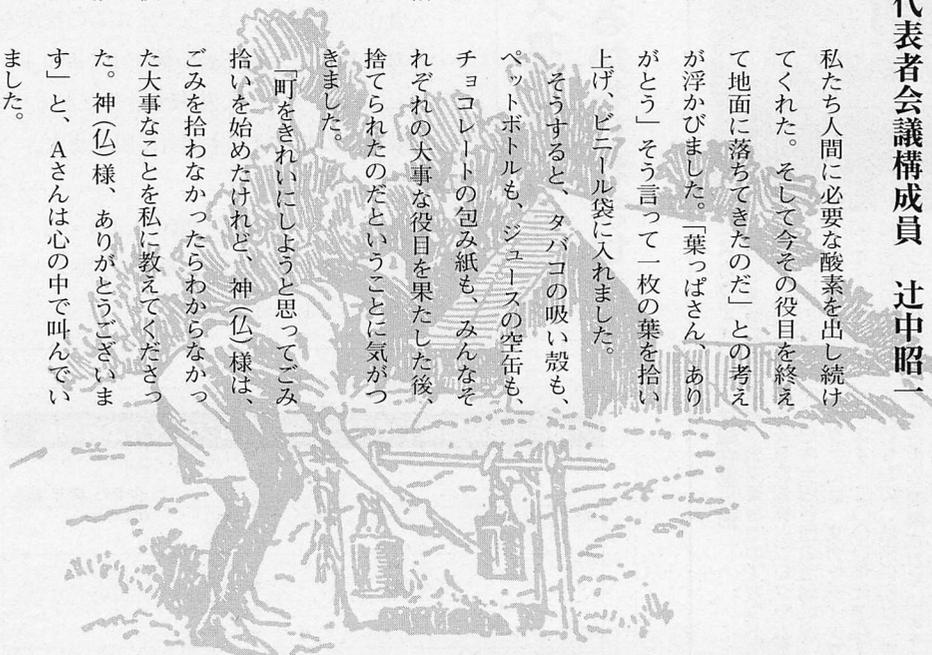 代表者会議構成員　辻中昭一
私たち人間に必要な酸素を出し続け
てくれた。そして今その役目を終え
て地面に落ちてきたのだ」との考え
が浮かびました。「葉っぱさん、あり
がとう」そう言って一枚の葉を拾い
上げ、ビニール袋に入れました。
そうすると、タバコの吸い殻も、
ペットボトルも、ジュースの空缶も、
チョコレートの包み紙も、みんなそ
れぞれの大事な役目を果たした後、
捨てられたのだということに気がつ
きました。
「町をきれいにしようと思ってごみ
拾いを始めたけれど、神(仏)様は、
ごみを拾わなかったらわからなかっ
た大事なことを私に教えてくださっ
た。神(仏)様、ありがとうございま
す」と、Aさんは心の中で叫んでい
ました。